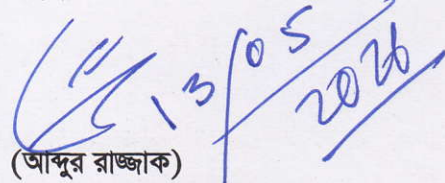 13/05/2026
(আব্দুর রাজ্জাক)